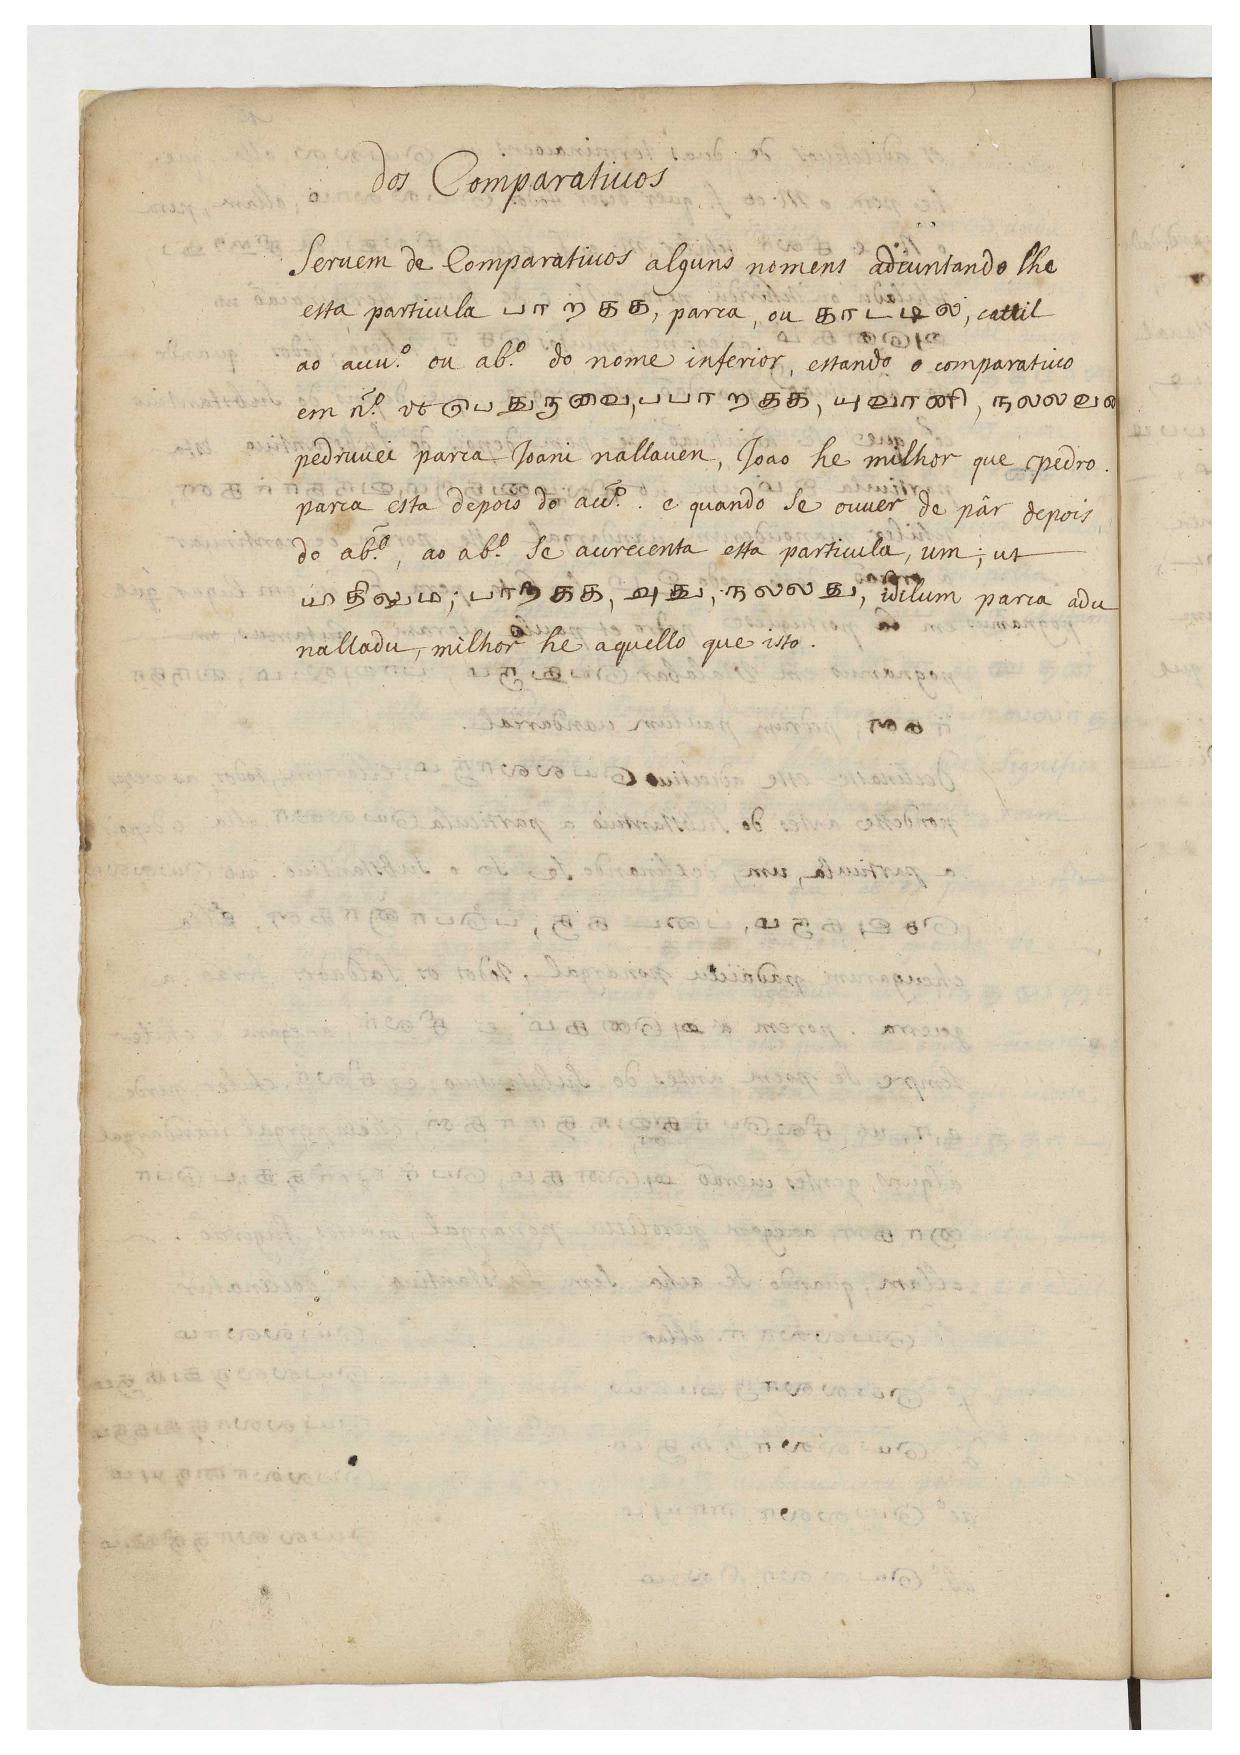 dos Comparatiuos
Seruem de Comparatiuos alguns nomens adiuntando lhe
esta particula பாறகக, parca, ou காடடில, cattil
ao accu.º ou ab.º do nome inferior, estando o comparatiuo
em n.º ut பெதுருவை, பாறகக, யுவானி, நலலவன
pedruuei parca Joani nallauen, Joao he milhor que pedro.
parca esta depois do acu.º. e quando se ouuer de pâr depois
do ab.º, ao ab.º se acrecenta esta particula, um, ut
யிதிலும, பாறகக, அது, நலலது, idilum parca adu
nalladu, milhor he aquello que isto.